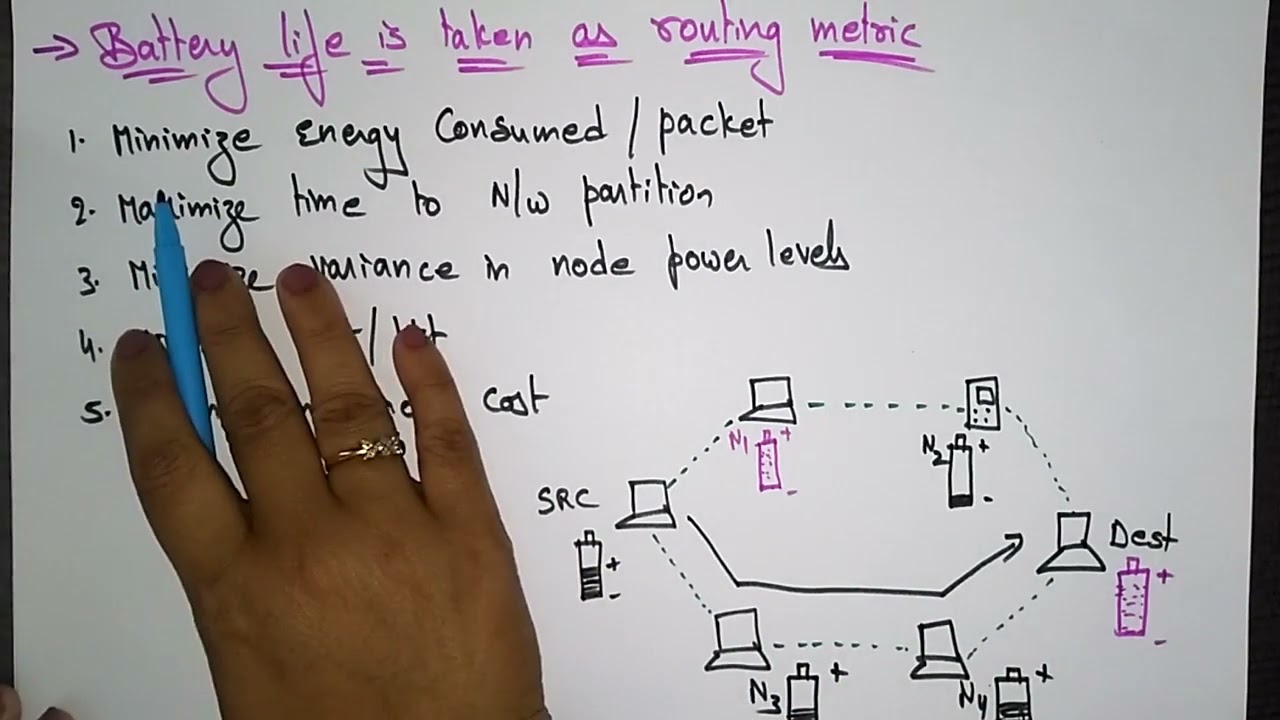 → Battery life is taken as routing metric
1. Minimize Energy Consumed / packet
2. Maximize time to N/w partition
3. variance in node power levels
4.
5. cost
N1 + -
N2 + -
SRC
+ -
Dest
+ -
N3 +
N4 +